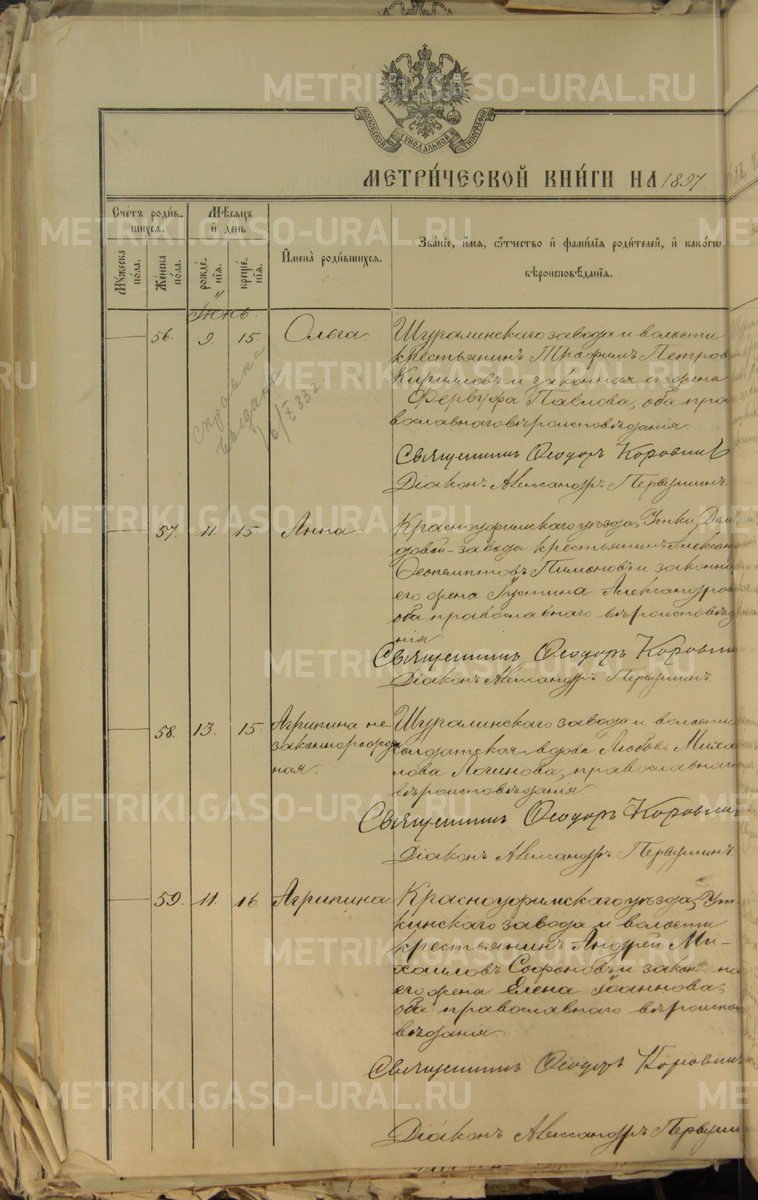 METRIKI.GASO-URAL.RU
МОСКОВСКОЙ СѴНОДАЛЬНОЙ ТИПОГРАФІИ
МЕТРИ́ЧЕСКОЙ КНИ́ГИ НА 1897
Сче́тъ роди́в-
шихся.
Мꙋ́жеска
по́ла.
Же́нска
по́ла.
Мѣ́сяцъ
и҆ де́нь
рожде́-
нїя.
креще́-
нїя.
И҆мена̀ роди́вшихся.
Зва́нїе, и҆́мя, ѻ҆́тчество и҆ фами́лїя роди́телей, и҆ како́гѡ
вѣроисповѣ́данїя.
Іюнь.
56. 9. 15. Ольга. Шуралинскаго завода и волости
крестьянинъ Трофимъ Петров
Кириловъ и законная его жена
Павлова, оба пра
вославнаго вѣроисповѣданія.
Справка
выдана
Священникъ Ѳеодоръ Коровин
Діаконъ Александръ Первушинъ.
57. 11. 15. Анна Красноуфимскаго уѣзда, Утки, Деми
довой завода крестьянинъ Алекса
Ѳеопемптовъ Пимоновъ и законна
его жена Іустина Александров
оба православнаго вѣроисповѣда
нія
Священникъ Ѳеодоръ Корови
Діаконъ Александръ Первушинъ
58. 13. 15. Агрипина не
законнорожден
ная.
Шуралинскаго завода и волости
солдатская вдова Любовь Михаи
лова Логинова, православнаго
вѣроисповѣданія
Священникъ Ѳеодоръ Корови
Діаконъ Александръ Первушинъ
59. 11. 16. Агрипина Красноуфимскаго уѣзда, Ут
кинскаго завода и волости
крестьянинъ Андрей Ми-
хаиловъ Софоновъ и закон на
его жена Елена Іоаннова,
оба православнаго вѣроиспо
вѣданія
Священникъ Ѳеодоръ Корови
Діаконъ Александръ Первуши